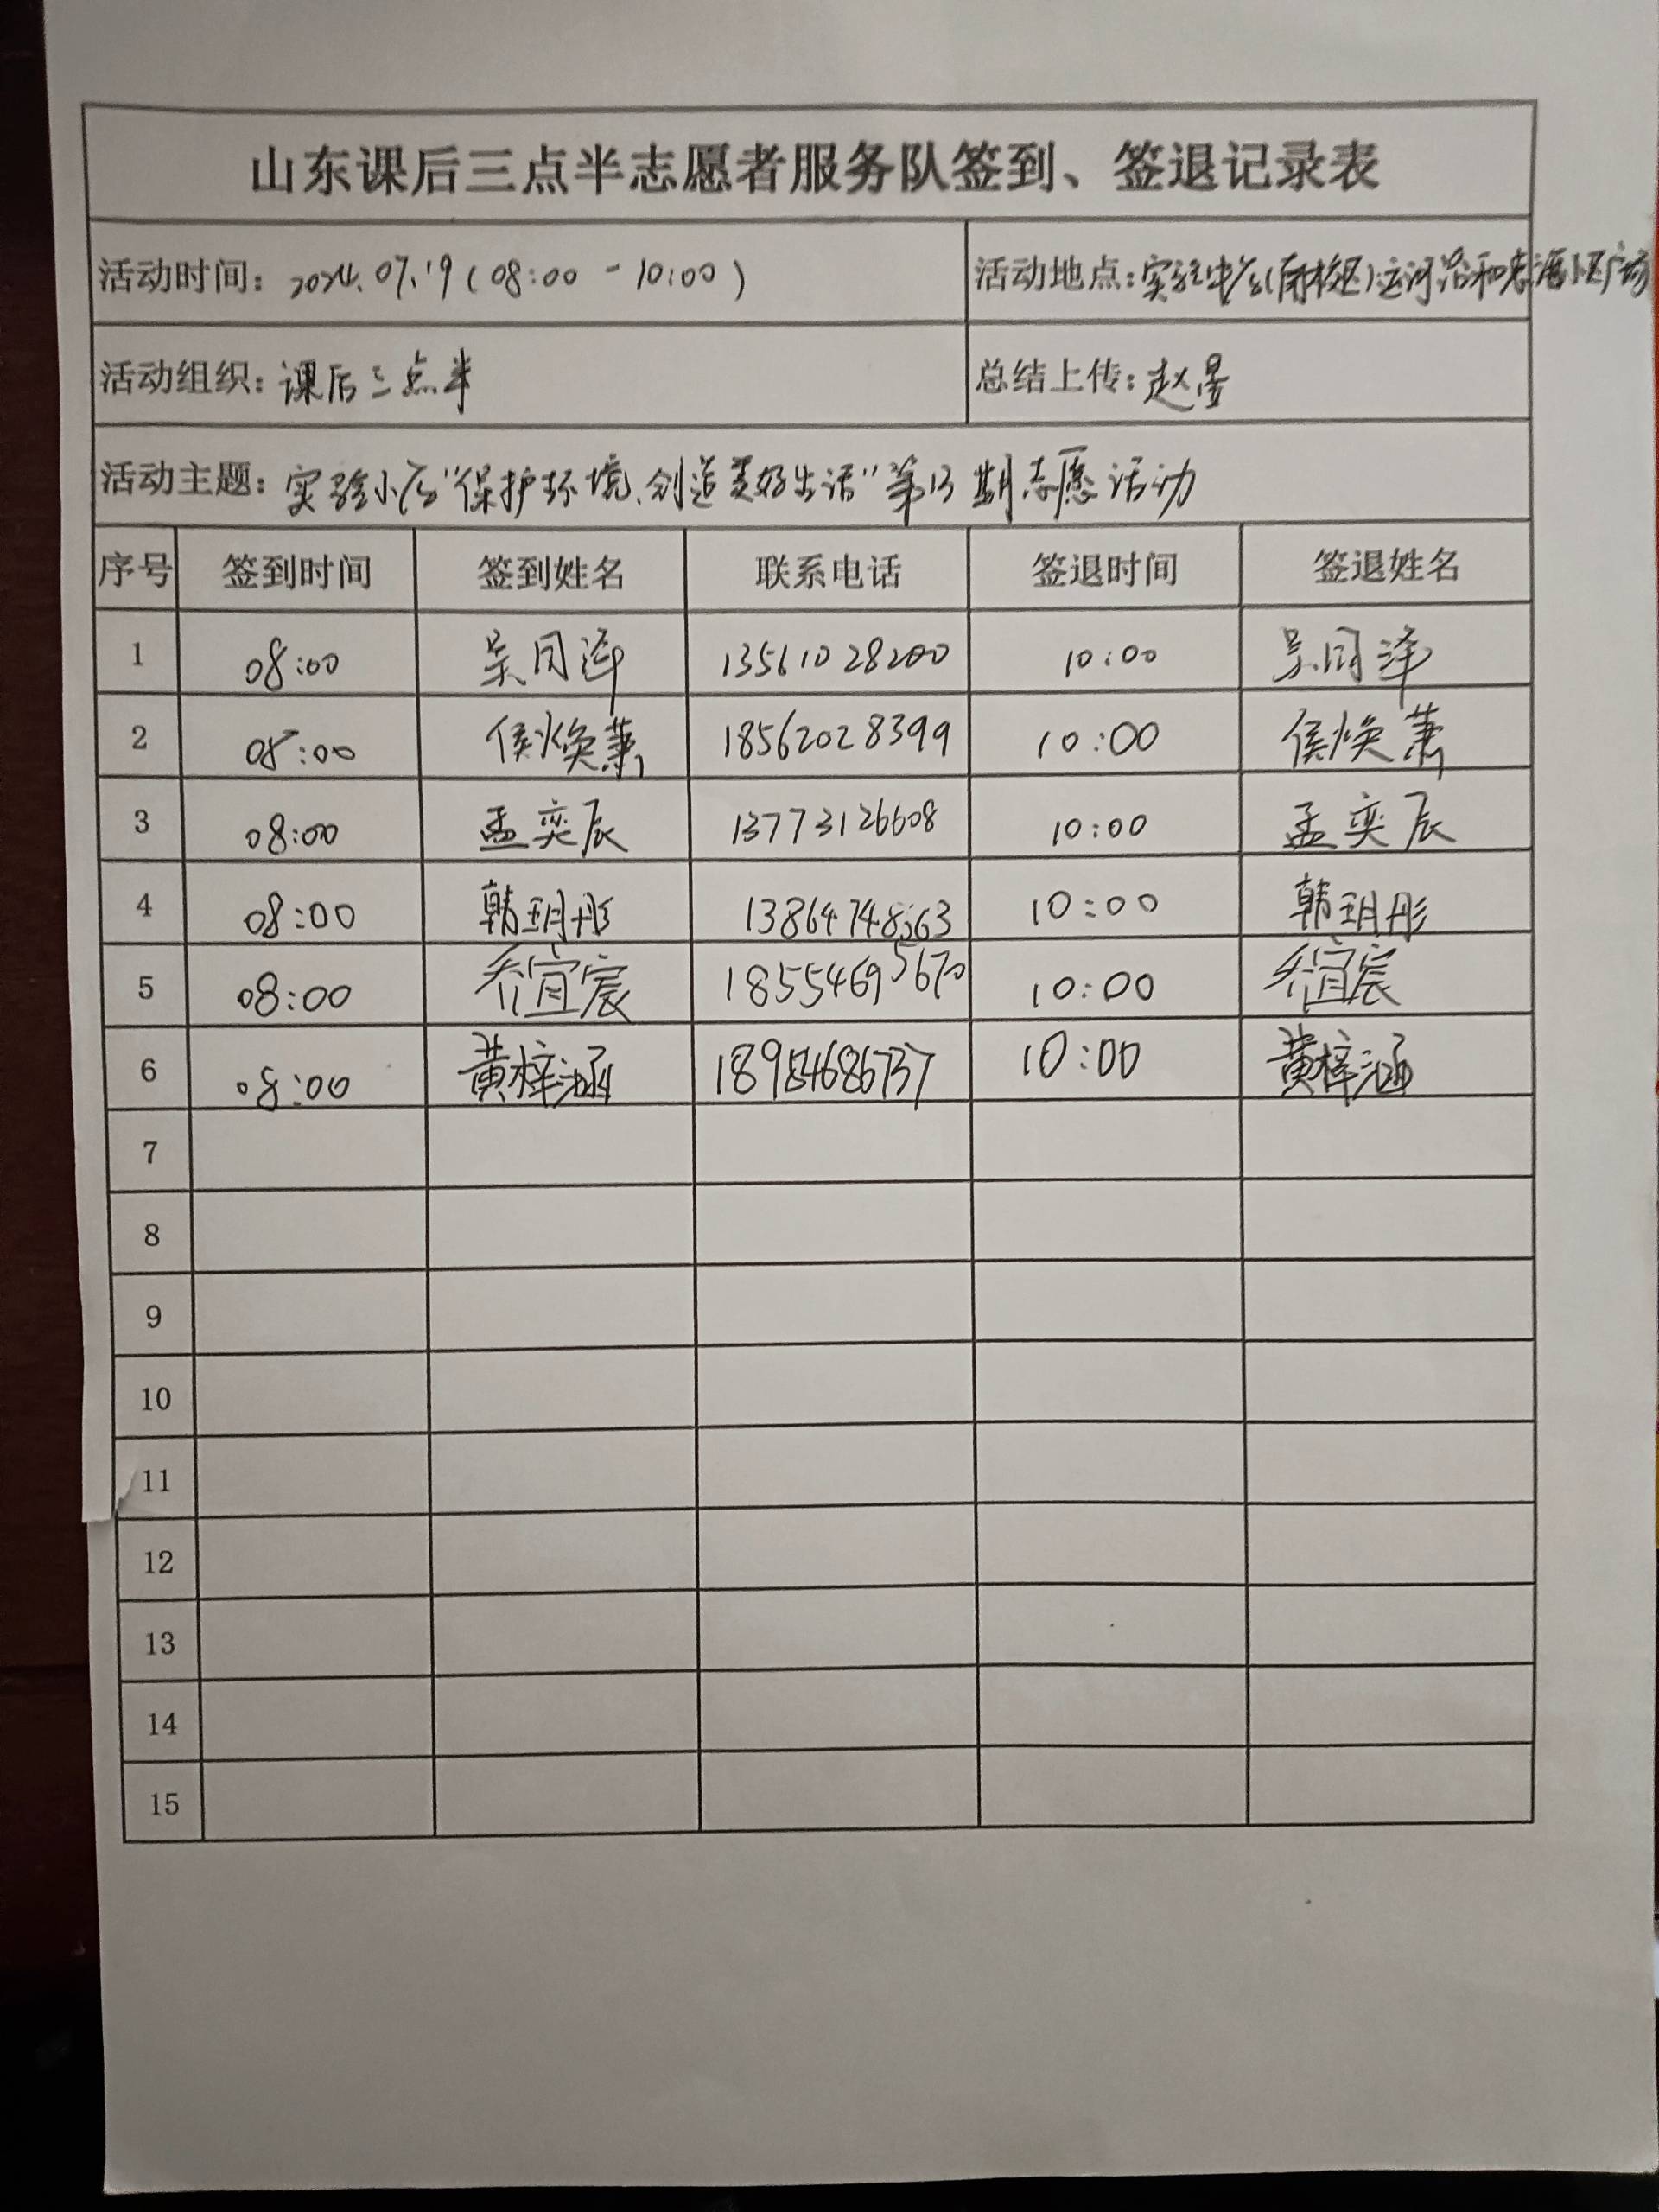 山东课后三点半志愿者服务队签到、签退记录表
活动时间: 2024.07.19(08:00-10:00) 活动地点: 实验中学(南校区)运河沿和
活动组织: 课后三点半 总结上传: 赵昱
活动主题: 实验小学“保护环境,创造美好生活”第13期志愿活动
序号 签到时间 签到姓名 联系电话 签退时间 签退姓名
1 08:00 吴同泽 13561028200 10:00 吴同泽
2 08:00 侯焕萧 18562028399 10:00 侯焕萧
3 08:00 孟奕辰 13773126608 10:00 孟奕辰
4 08:00 韩玥彤 13864748563 10:00 韩玥彤
5 08:00 乔宜宸 18554695670 10:00 乔宜宸
6 08:00 黄梓涵 10:00 黄梓涵
7
8
9
10
11
12
13
14
15